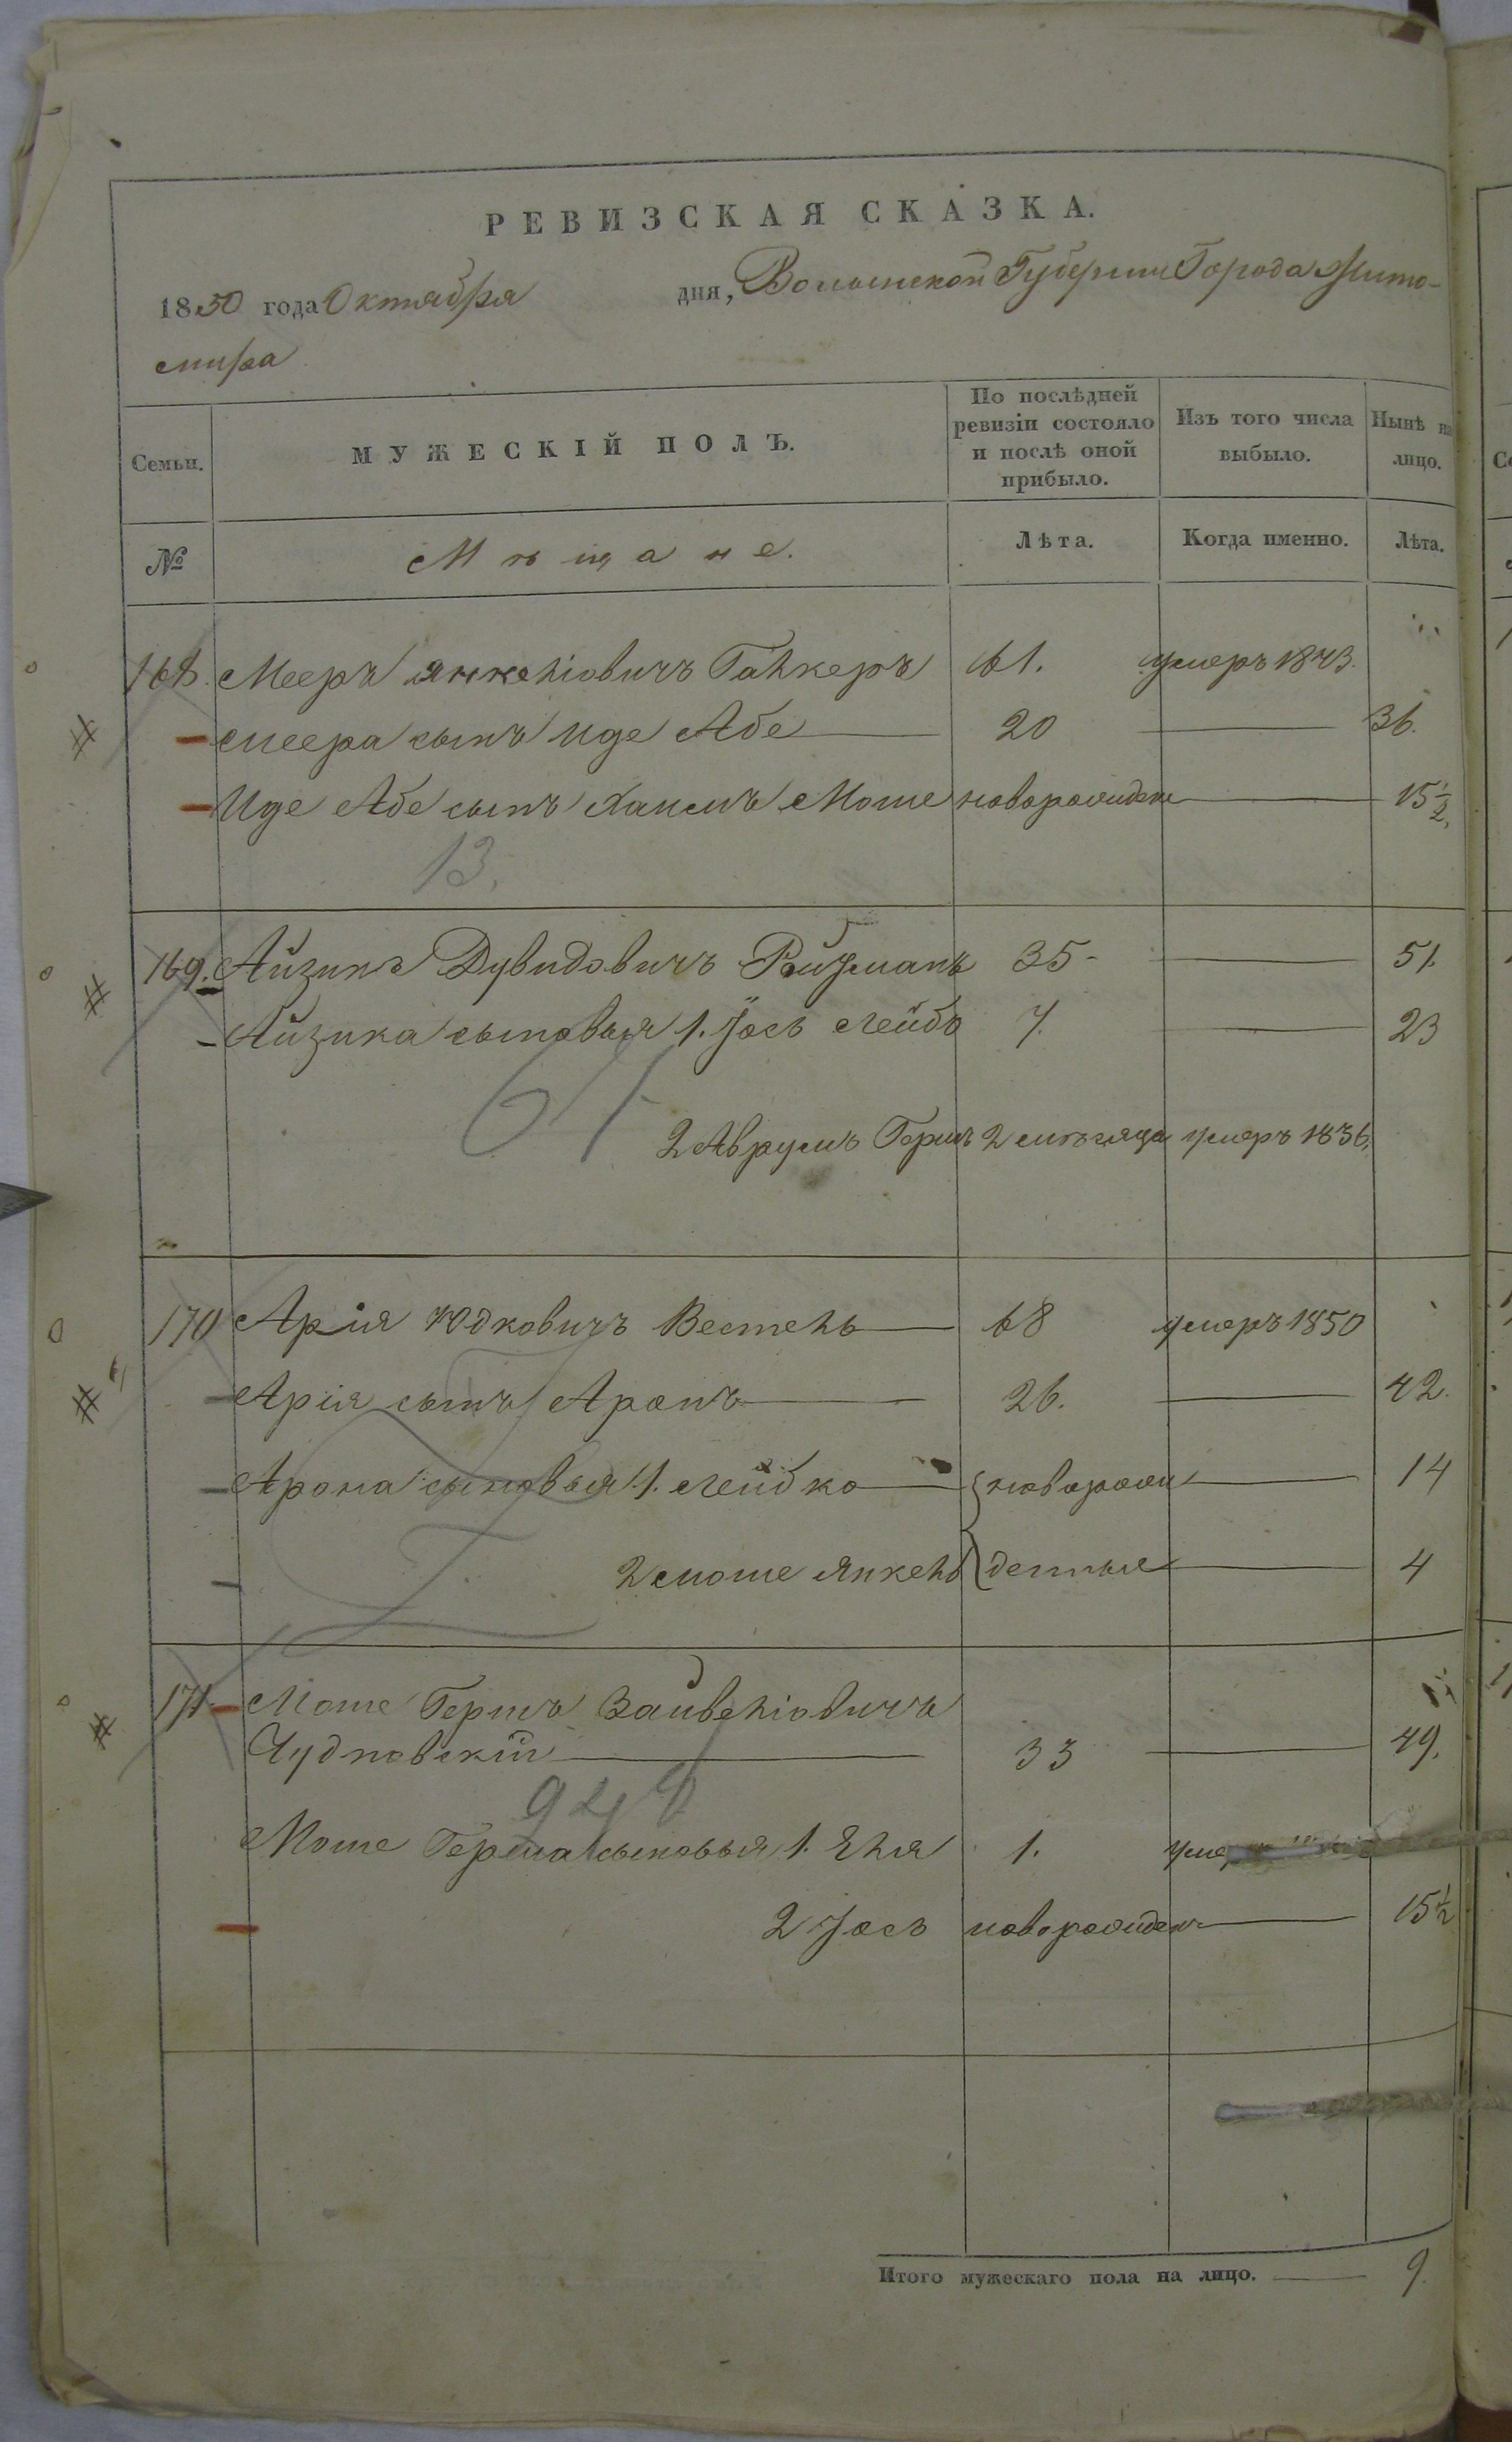 РЕВИЗСКАЯ СКАЗКА.
1850 года Октября дня, Волынской Губернии Города Жито-
мира
Семьи. МУЖЕСКІЙ ПОЛЪ. По послѣдней ревизіи состояло и послѣ оной прибыло. Изъ того числа выбыло. Нынѣ на лицо.
№ Мѣщане. Лѣта. Когда именно. Лѣта.
168. Мееръ Янкеліовичъ Галкеръ 61. умеръ 1843.
Меера сынъ Иде Абе 20 36.
Иде Абе сынъ Хаимъ Моше новорожден 15 1/2.
13.
169. Айзикъ Дувидовичъ Ройтманъ 35 51.
Айзика сыновья 1. Іось Лейбъ 7. 23
61
2 Аврумъ Гершъ 2 мѣсяца умеръ 1836.
170 Арія Юдковичъ Вестель 68 умеръ 1850
Арія сынъ Аронъ 26. 42.
Арона сыновья 1. Лейбко новорож 14
2 Моше Янкель денные 4
171 Моше Гершъ Зайвеліовичъ
Чудновскій 33 49.
Моше Герша сыновья 1. Эля 1. уме
2 Іось новорожден 15 1/2
Итого мужескаго пола на лицо. 9.